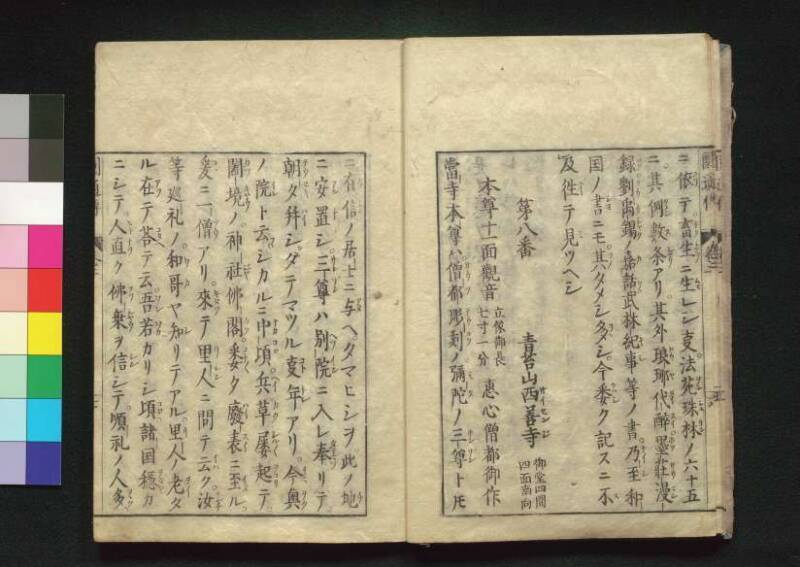 ニ依テ畜生ニ生レシ叓法苑珠林ノ六十五
ニ其例数条アリ其外琅琊代酔墨荘漫
録劉禹錫ノ嘉話武林紀事等ノ書乃至和
国ノ書ニモ其タメシ多シ今委ク記スニ不
及往テ見ツヘシ
第八番 青苔山西善寺 御堂四間 四面南向
本尊十一面觀音 立像御長 七寸一分 恵心僧都御作
當寺本尊ハ僧都彫刻ノ彌陀ノ三尊トモ
ニ有信ノ居士ニ与ヘタマヒシヲ此ノ地
ニ安置シ三尊ハ別院ニ入レ奉リテ
朝タ拜シタテマツル叓年アリ今奥
ノ院ト云シカルニ中頃兵革屡起テ
閫境ノ神社佛閣委ク廢衰ニ至ル
爰ニ一僧アリ來テ里人ニ問テ云ク汝
等巡礼ノ和哥ヤ知リテアル里人ノ老タ
ル在テ荅テ云吾若カリシ頃諸国穏カ
ニシテ人直ク佛乗ヲ信シテ順礼ノ人多